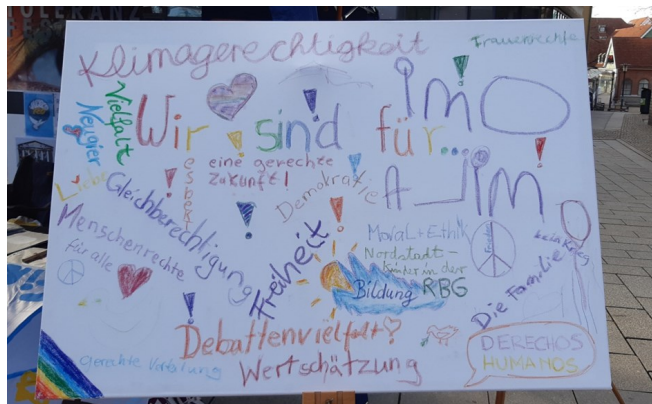 Klimagerechtigkeit
Frauenrechte
Vielfalt
Neugier
Liebe
Wir sind für...
Respekt
eine gerechte
Zukunft!
Demokratie
Gleichberechtigung
Menschenrechte
für alle
Freiheit
Moral + Ethik
Nordstadt-
Kinder in der
RBG
Bildung
Frieden
kein Krieg
Die Familie
Debattenvielfalt!
Wertschätzung
gerechte Verteilung
DERECHOS
HUMANOS